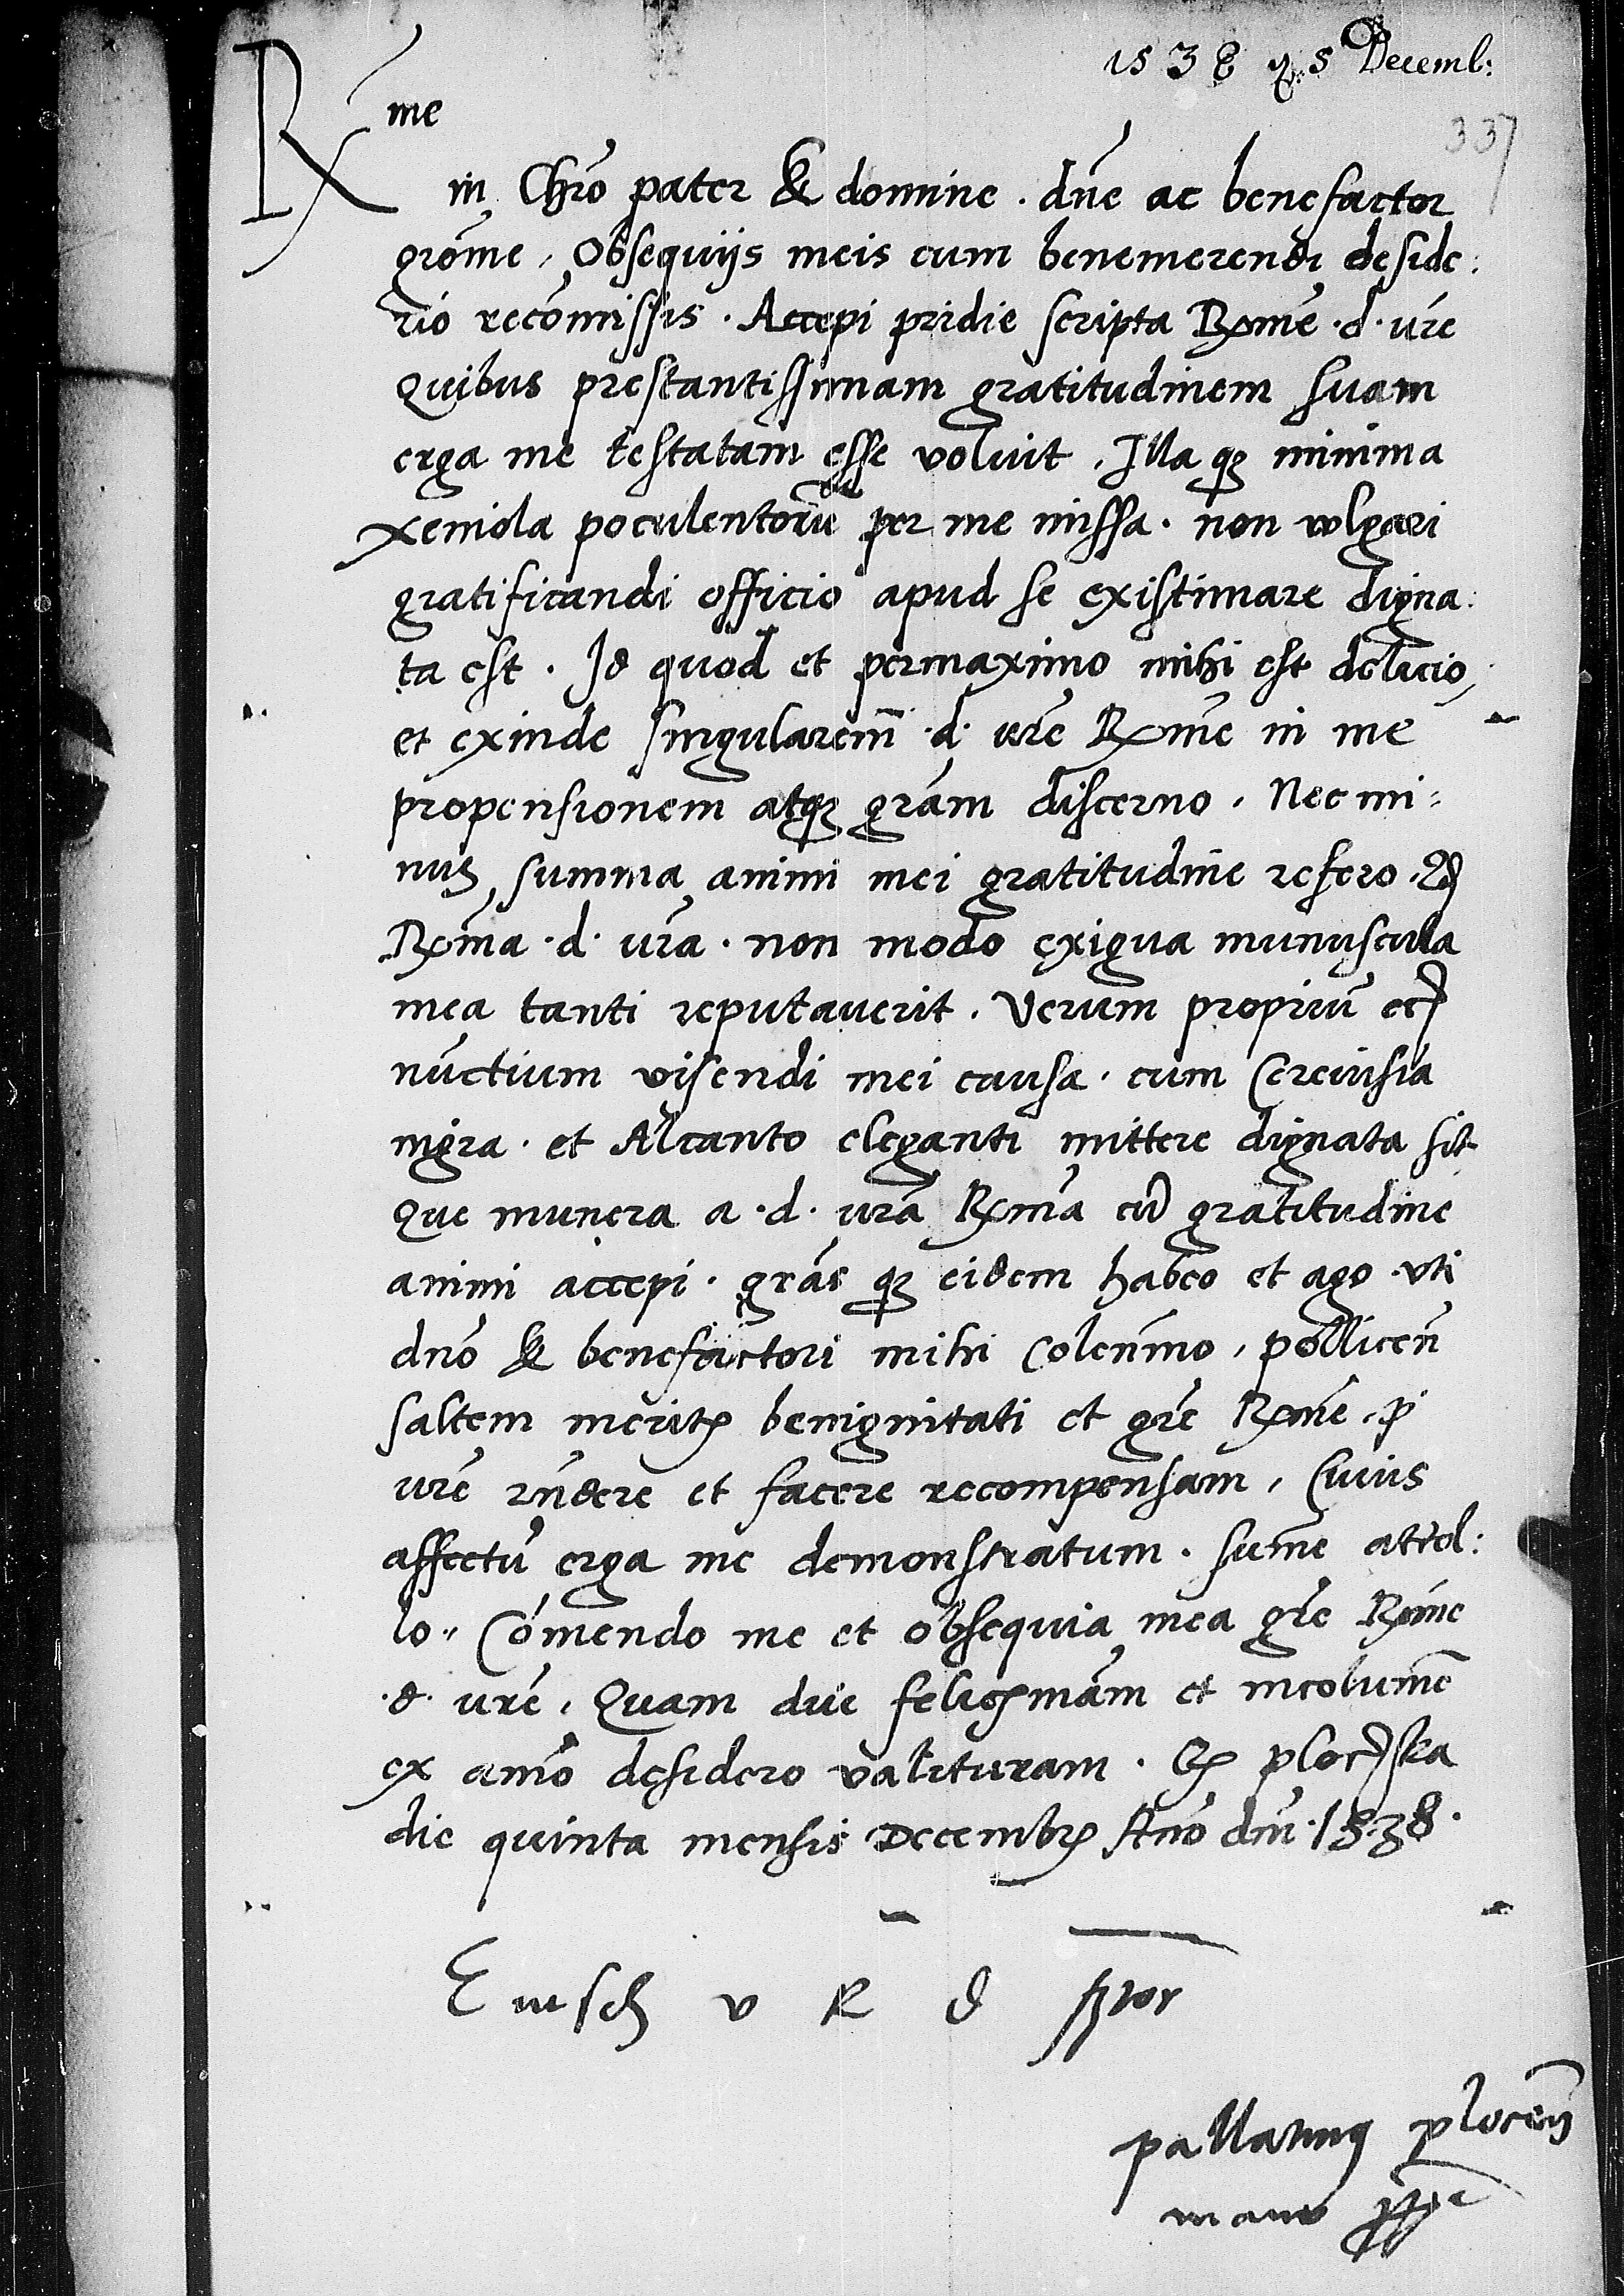 1538 5 Decemb:
337
Rme
in Chro pater & domine . dne ac benefactor
grome, Obsequijs meis cum benemerendi deside:
rio recomissis . Accepi pridie scripta Rxme .d. vre
Quibus prestantissimam gratitudinem suam
erga me testatam esse voluit, Illa qz minima
xeniola poculentoru per me missa . non volgari
gratificandi officio apud se existimare digna:
ta est . Id quod et permaximo mihi est delicio,
et exinde singularem .d. vre Rxme in me
propensionem atqz gram discerno, Nec mi:
nus summa animi mei gratitudine refero. Qd
Rxma .d. vra . non modo exigua munuscula
mea tanti reputaverit. Verum propriu eciam
nuctium visendi mei causa . cum Cerevisia
nigra . et Alcanto eleganti mittere dignata sit
Que munera a .d. vra Rxma cum gratitudine
animi accepi . gras qz eidem habeo et ago . vti
dno & benefactori mihi Colenmo, pollicen
saltem meritis benignitati et gre Rxme .p
vre rndere et facere recompensam, Cuius
affectu erga me demonstratum . sume attol:
lo,, Comendo me et obsequia mea gre Rxme
.d. vre, Quam diu felicismam et incolume
ex amo desidero valituram . Ex plociska
die quinta mensis Decembris Ano dni .1538.
Eiusd v R d
pallatinus plocen
manu